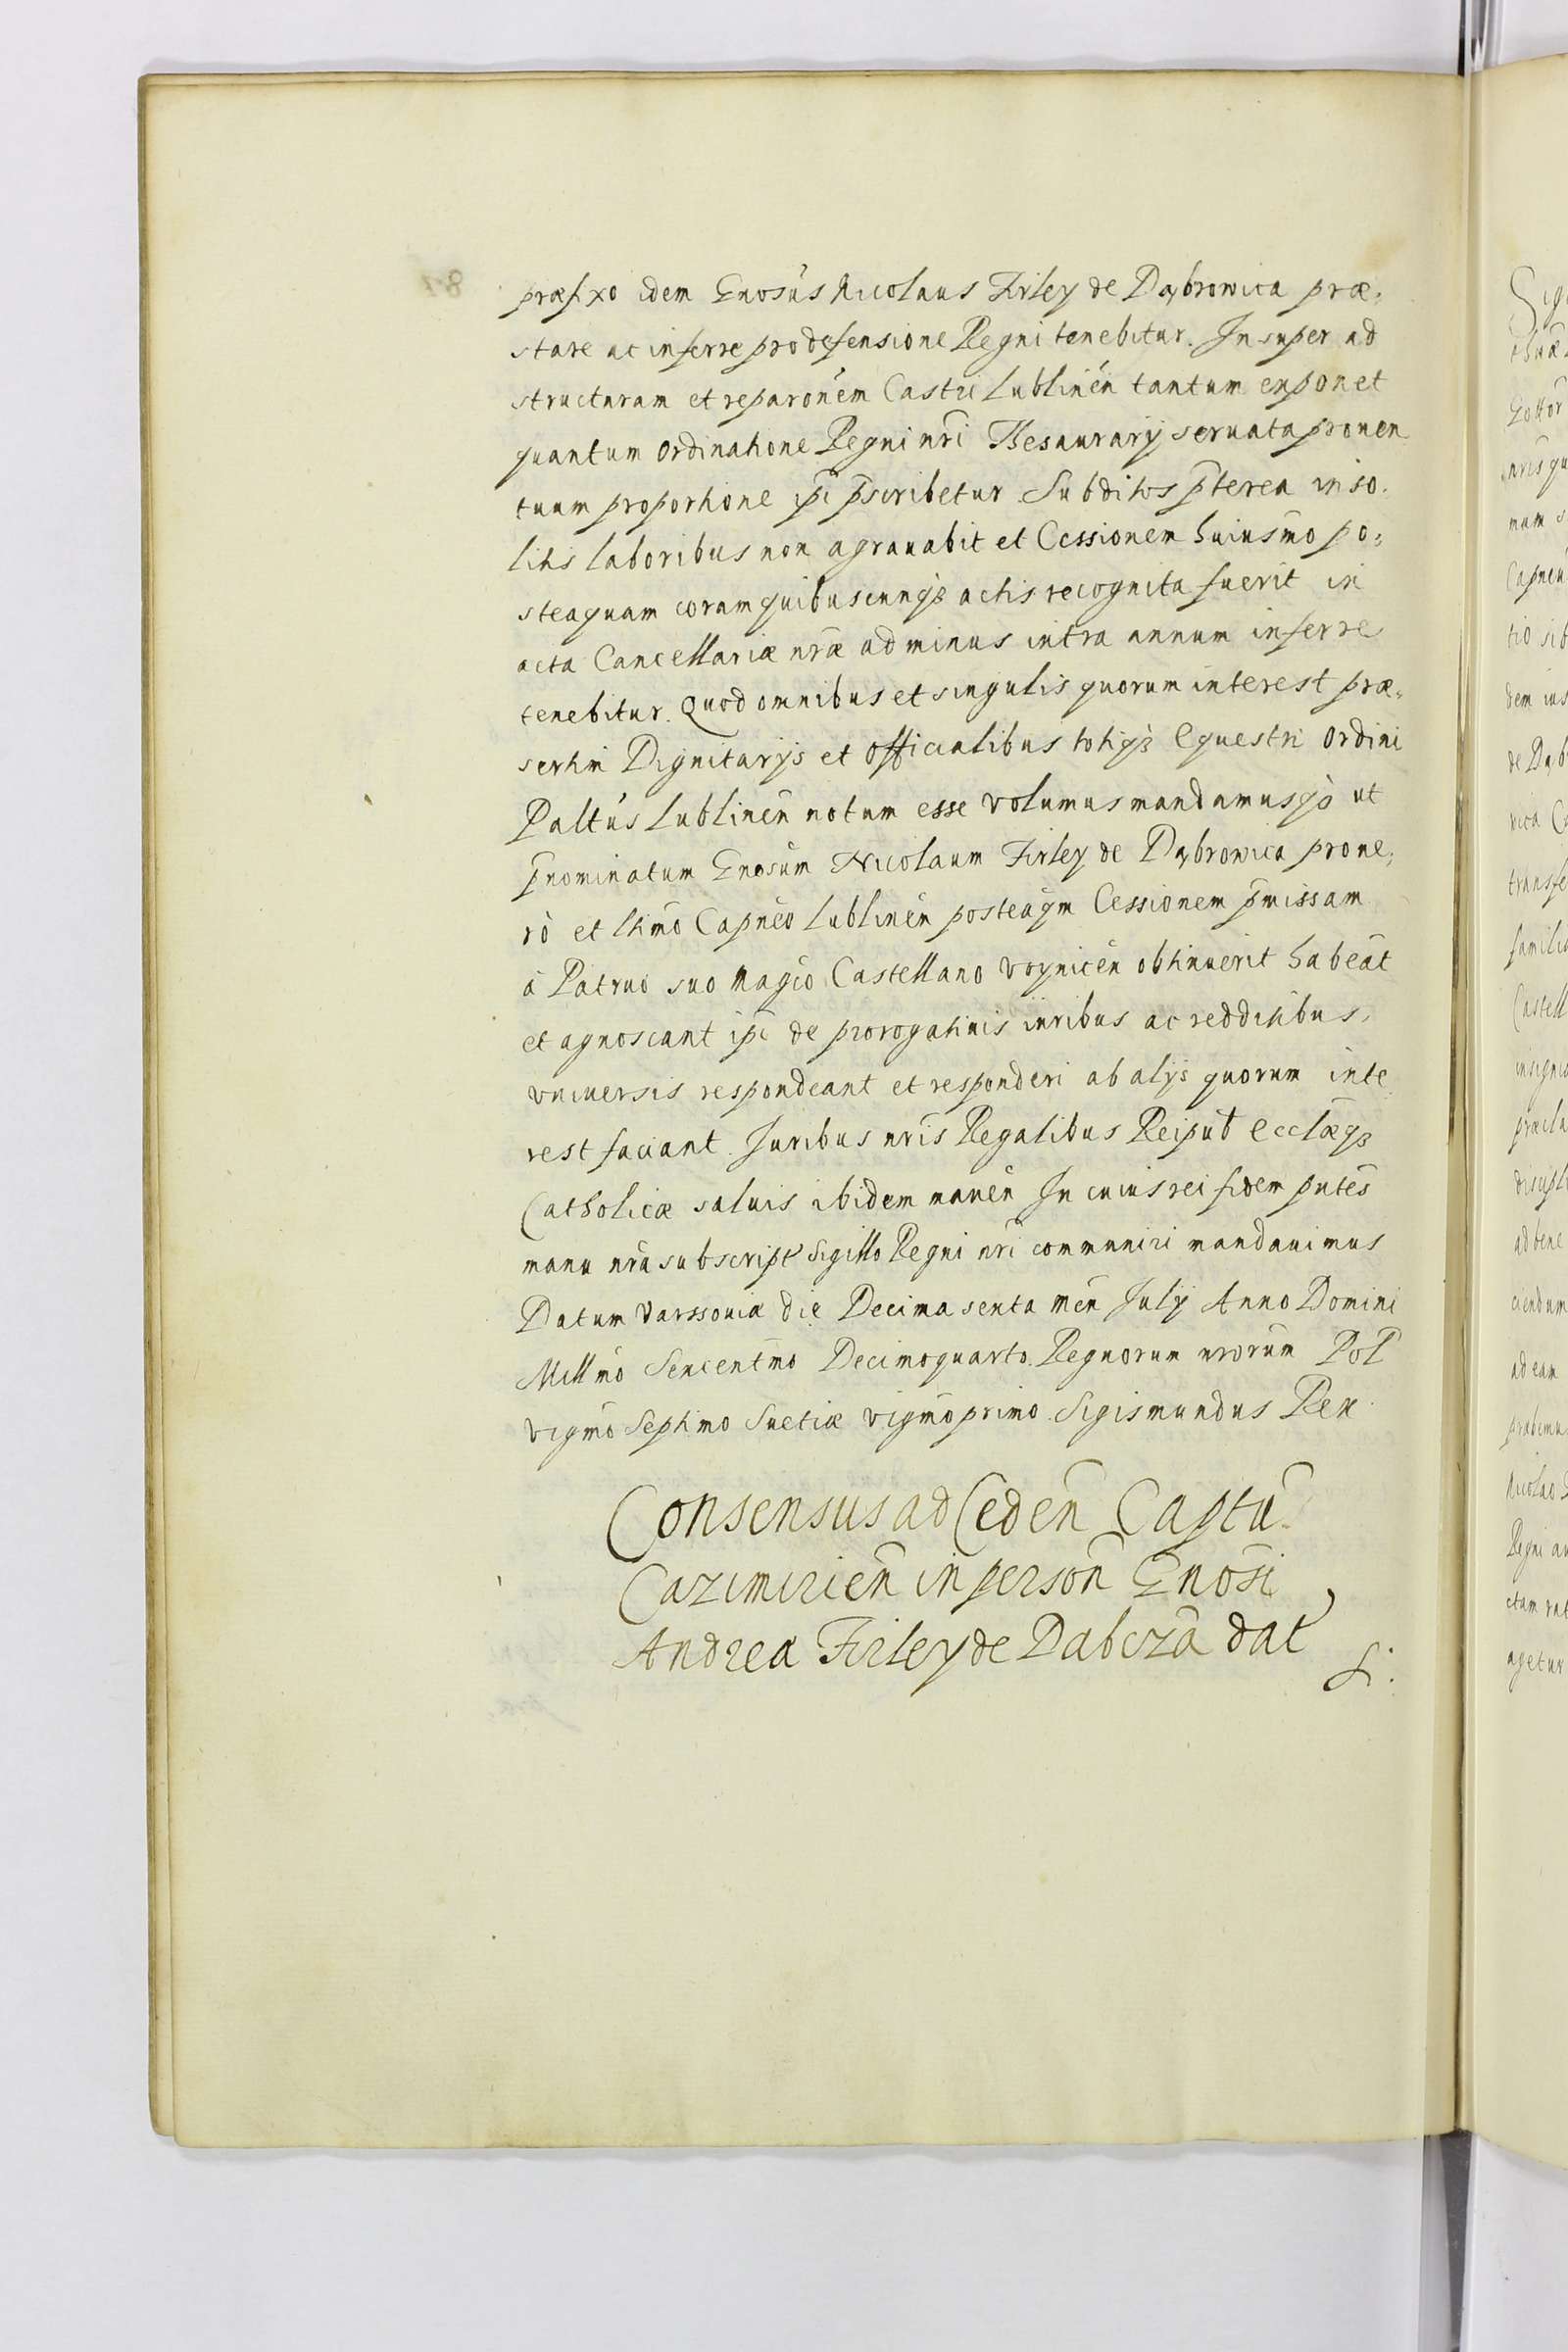 præfixo idem Gnosus Nicolaus Firley de Dąbrowica præ,
stare ac inferre pro defensione Regni tenebitur. In super ad
structuram et reparonem Castri Lublinen tantum exponet
quantum ordinatione Regni nri Thesaurarij seruata prouen
tuum proportione ipi pscribetur Subditos pterea inso.
litis laboribus non agrauabit et Cessionem huiusmo po,
steaquam coram quibuscunqз actis recognita fuerit in
acta Cancellariæ nræ ad minus intra annum inferre
tenebitur. Quod omnibus et singulis quorum interest præ,
sertim Dignitarijs et officialibus totiqз Equestri Ordini
Paltus Lublinen notum esse volumus mandamusqз ut
pnominatum Gnosum Nicolaum Firley de Dąbrowica pro ue,
ro et ltimo Capneo Lublinen posteaqm Cessionem pmissam
à Patruo suo Magco Castellano voynicen obtinuerit habeat
et agnoscant ipi de prorogatiuis iuribus ac redditibus,
vniuersis respondeant et responderi ab alijs quorum inte
rest faciant. Juribus nris Regalibus Reipub ecclæqз
Catholicæ saluis ibidem manen In cuius rei fidem pntes
manu nra subscript Sigillo Regni nri communiri mandauimus
Datum Varssouiæ die Decima sexta men July Anno Domini
Millmo Sexcentmo Decimoquarto. Regnorum nrorum Pol
vigmo Septimo Suetiæ vigmo primo. Sigismundus Rex
Consensus ad Ceden Captu
Cazimirien in person Gnosi
Andrea Firley de Dabcza dat
Si.